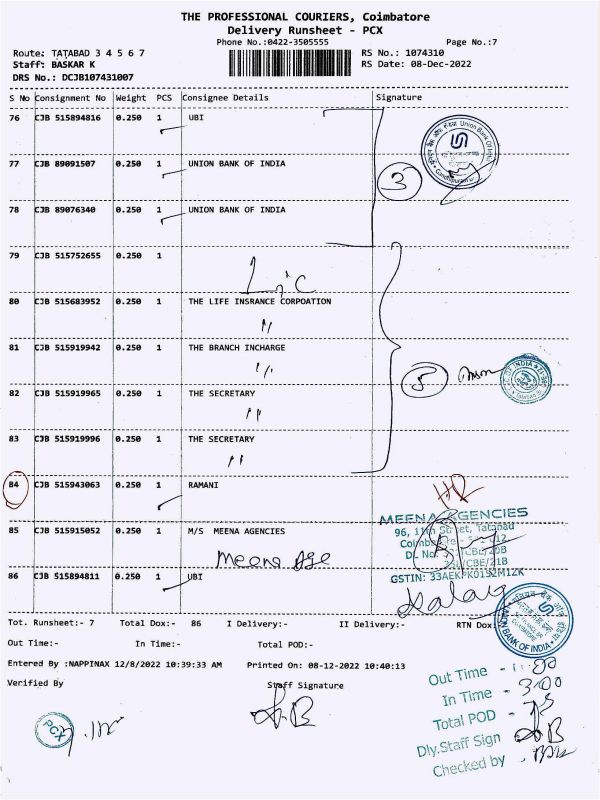 THE PROFESSIONAL COURIERS, Coimbatore
Delivery Runsheet - PCX
Phone No.:0422-3505555 Page No.:7
Route: TATABAD 3 4 5 6 7 RS No.: 1074310
Staff: BASKAR K RS Date: 08-Dec-2022
DRS No.: DCJB107431007
S No Consignment No Weight PCS Consignee Details Signature
76 CJB 515894816 0.250 1 UBI
77 CJB 89091507 0.250 1 UNION BANK OF INDIA
3
78 CJB 89076340 0.250 1 UNION BANK OF INDIA
79 CJB 515752655 0.250 1
Lic
80 CJB 515683952 0.250 1 THE LIFE INSRANCE CORPOATION
〃
81 CJB 515919942 0.250 1 THE BRANCH INCHARGE
〃
5
82 CJB 515919965 0.250 1 THE SECRETARY
〃
83 CJB 515919996 0.250 1 THE SECRETARY
〃
84 CJB 515943063 0.250 1 RAMANI
MEENA AGENCIES
85 CJB 515915052 0.250 1 M/S MEENA AGENCIES
96, 11th Street, Tatabad
Meena Age
86 CJB 515894811 0.250 1 UBI
Tot. Runsheet:- 7 Total Dox:- 86 I Delivery:- II Delivery:- RTN Dox:-
Out Time:- In Time:- Total POD:-
Entered By :NAPPINAX 12/8/2022 10:39:33 AM Printed On: 08-12-2022 10:40:13
Verified By Staff Signature
Out Time -
In Time - 3.00
Total POD - 
Dly.Staff Sign
Checked by